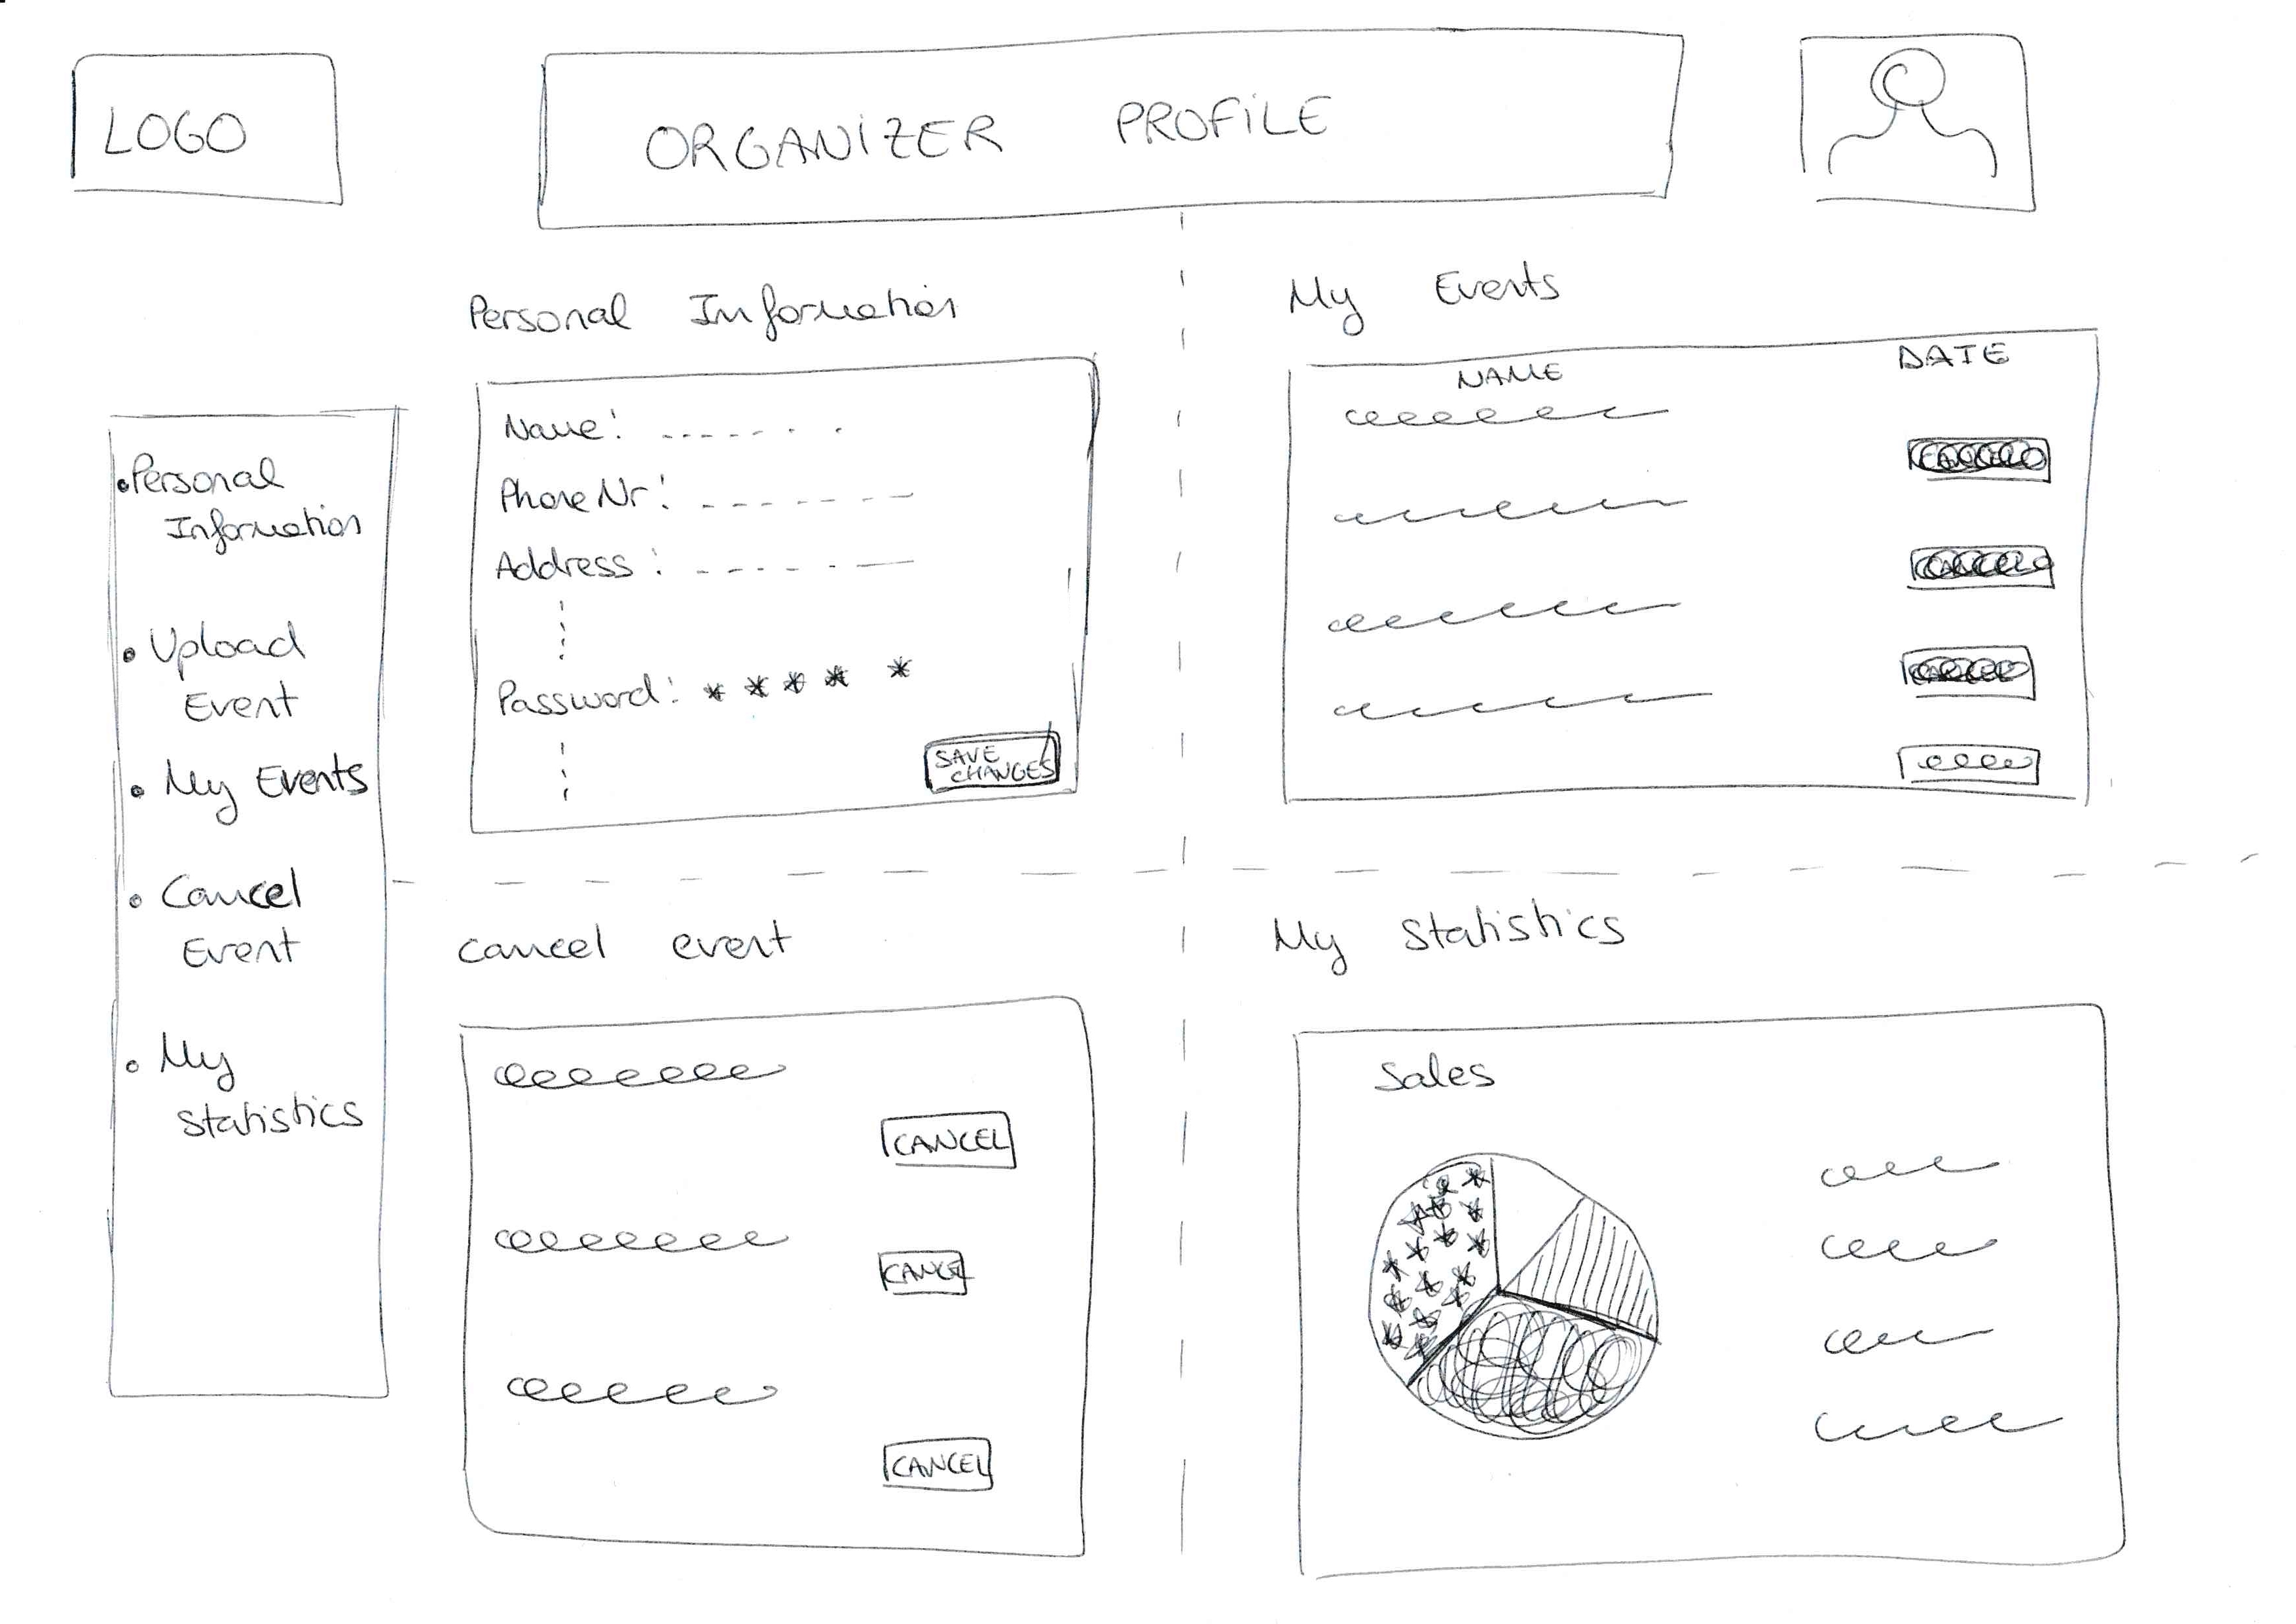 LOGO
ORGANIZER PROFILE
• Personal
Information
• Upload
Event
• My Events
• Cancel
Event
• My
Statistics
Personal Information
Name: ------- 
Phone Nr: -------
Address: -------
Password: * * * * *
SAVE
CHANGES
My Events
NAME DATE
cancel event
CANCEL
CANCEL
CANCEL
My Statistics
Sales